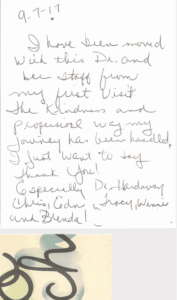 9-7-17
I have been moved
with this Dr. and
her staff from
my first visit
The Kindness and
way my
Journey has been handled,
I just want to say
Thank you!
Especially Dr. Hardaway
Chris, Tracy,
and Brenda!